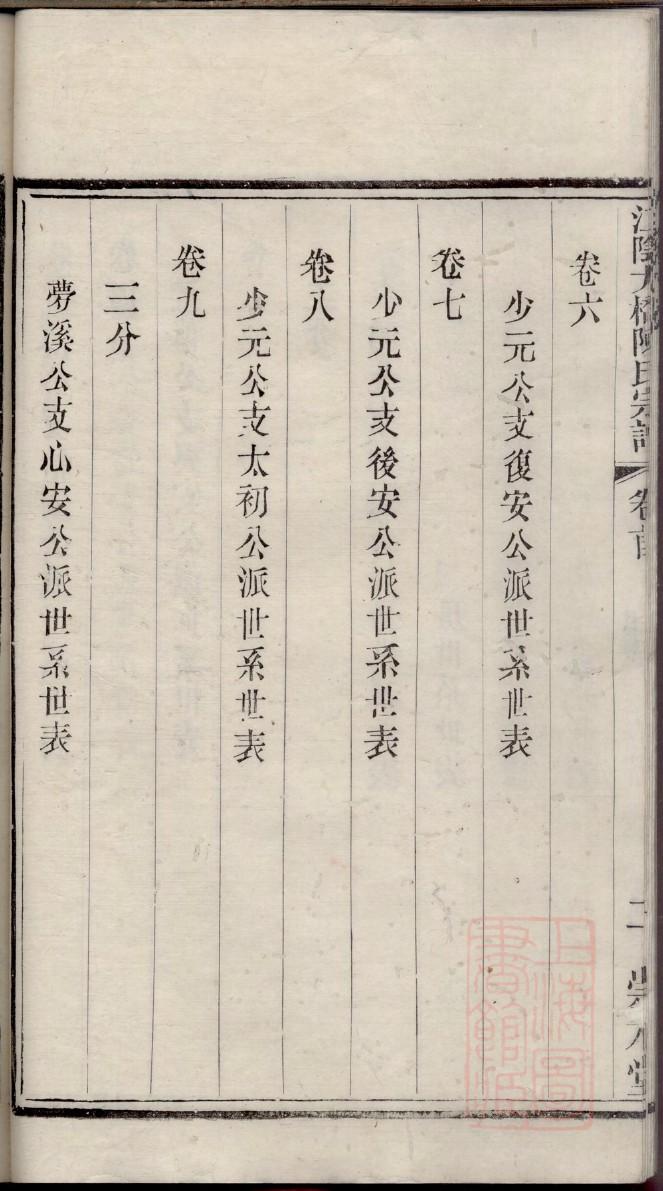 江陰 橋陳氏宗譜 卷首
卷六
少元公支復安公派世系世表
卷七
少元公支後安公派世系世表
卷八
少元公支太初公派世系世表
卷九
三分
夢溪公支心安公派世系世表
上海圖書館藏